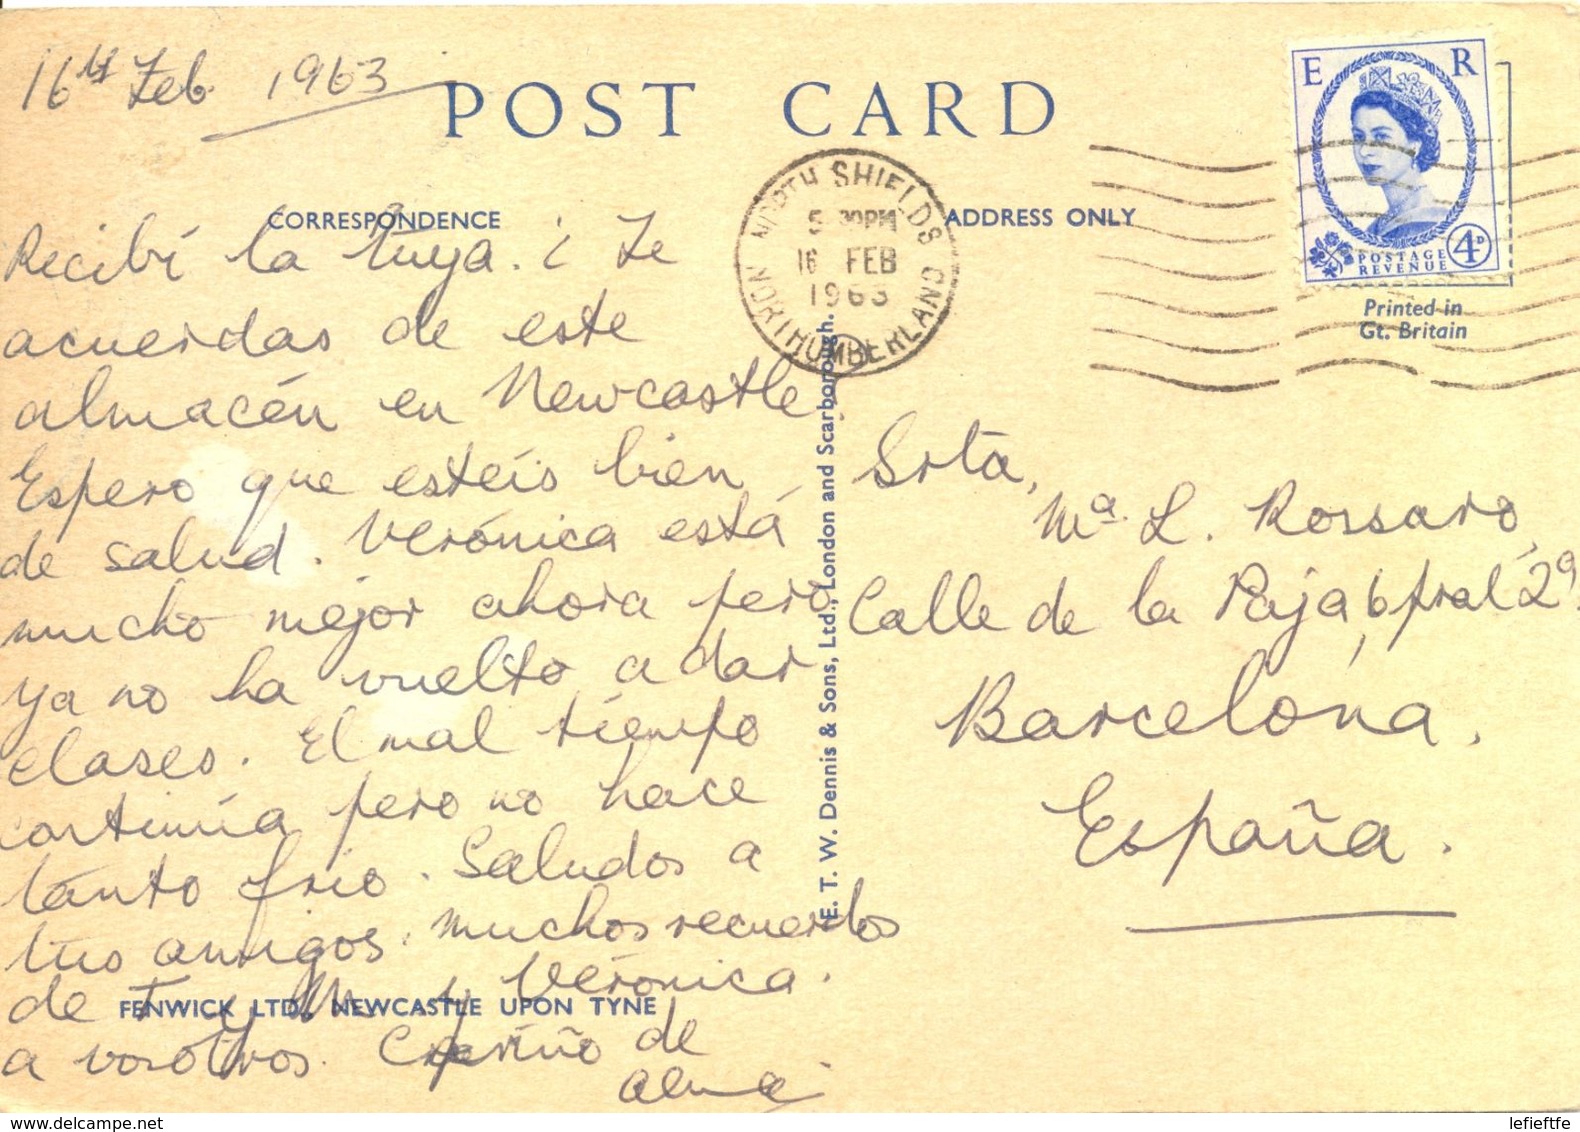 16th Feb. 1963
POST CARD
CORRESPONDENCE
ADDRESS ONLY
Recibí la tuya. ¿ Te
acuerdas de este
almacén en Newcastle.
Espero que estéis bien
de salud. Verónica está
mucho mejor ahora pero
ya no ha vuelto a dar
clases. El mal tiempo
continúa pero no hace
tanto frío. Saludos a
tus amigos. Muchos recuerdos
de T y M y Verónica.
a vosotros. Cariño de
Alma
FENWICK LTD., NEWCASTLE UPON TYNE
E. T. W. Dennis & Sons, Ltd., London and Scarborough.
NORTH SHIELDS
5 30PM
16 FEB
1963
NORTHUMBERLAND
E R
POSTAGE
REVENUE
4D
Printed in
Gt. Britain
Srta,
Mª L. Rossaro,
Calle de la Paja, 6 pral 2ª.
Barcelona.
España.
lefieftfe